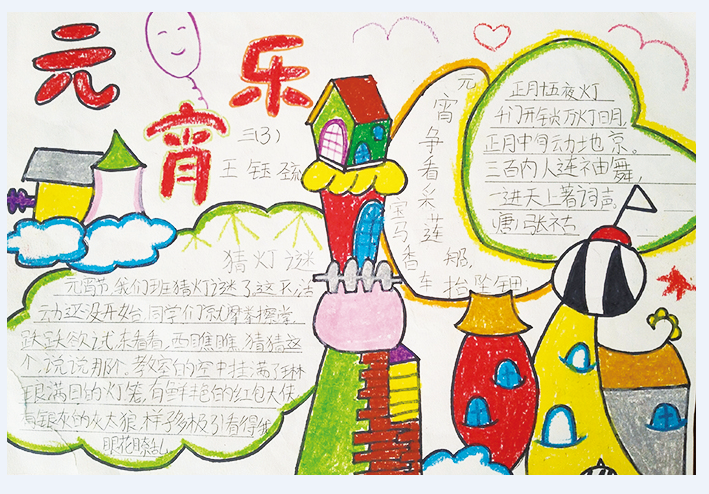 元宵乐
三(3)
王钰
猜灯谜
元宵节,我们班猜灯谜了。这不,活
动还没开始,同学们就摩拳擦掌,
跃跃欲试,东看看,西瞧瞧,猜猜这
个,说说那个。教室的空中挂满了琳
琅满目的灯笼,有鲜艳的红包大侠,
有银灰的灰太狼,样子多极引看得我
眼花瞭乱。
元宵争看采莲船,
宝马香车拾坠钿
正月十五夜灯
千门开锁万灯明,
正月中旬动地京。
三百内人连袖舞,
一进天上著词声。
唐 张祜